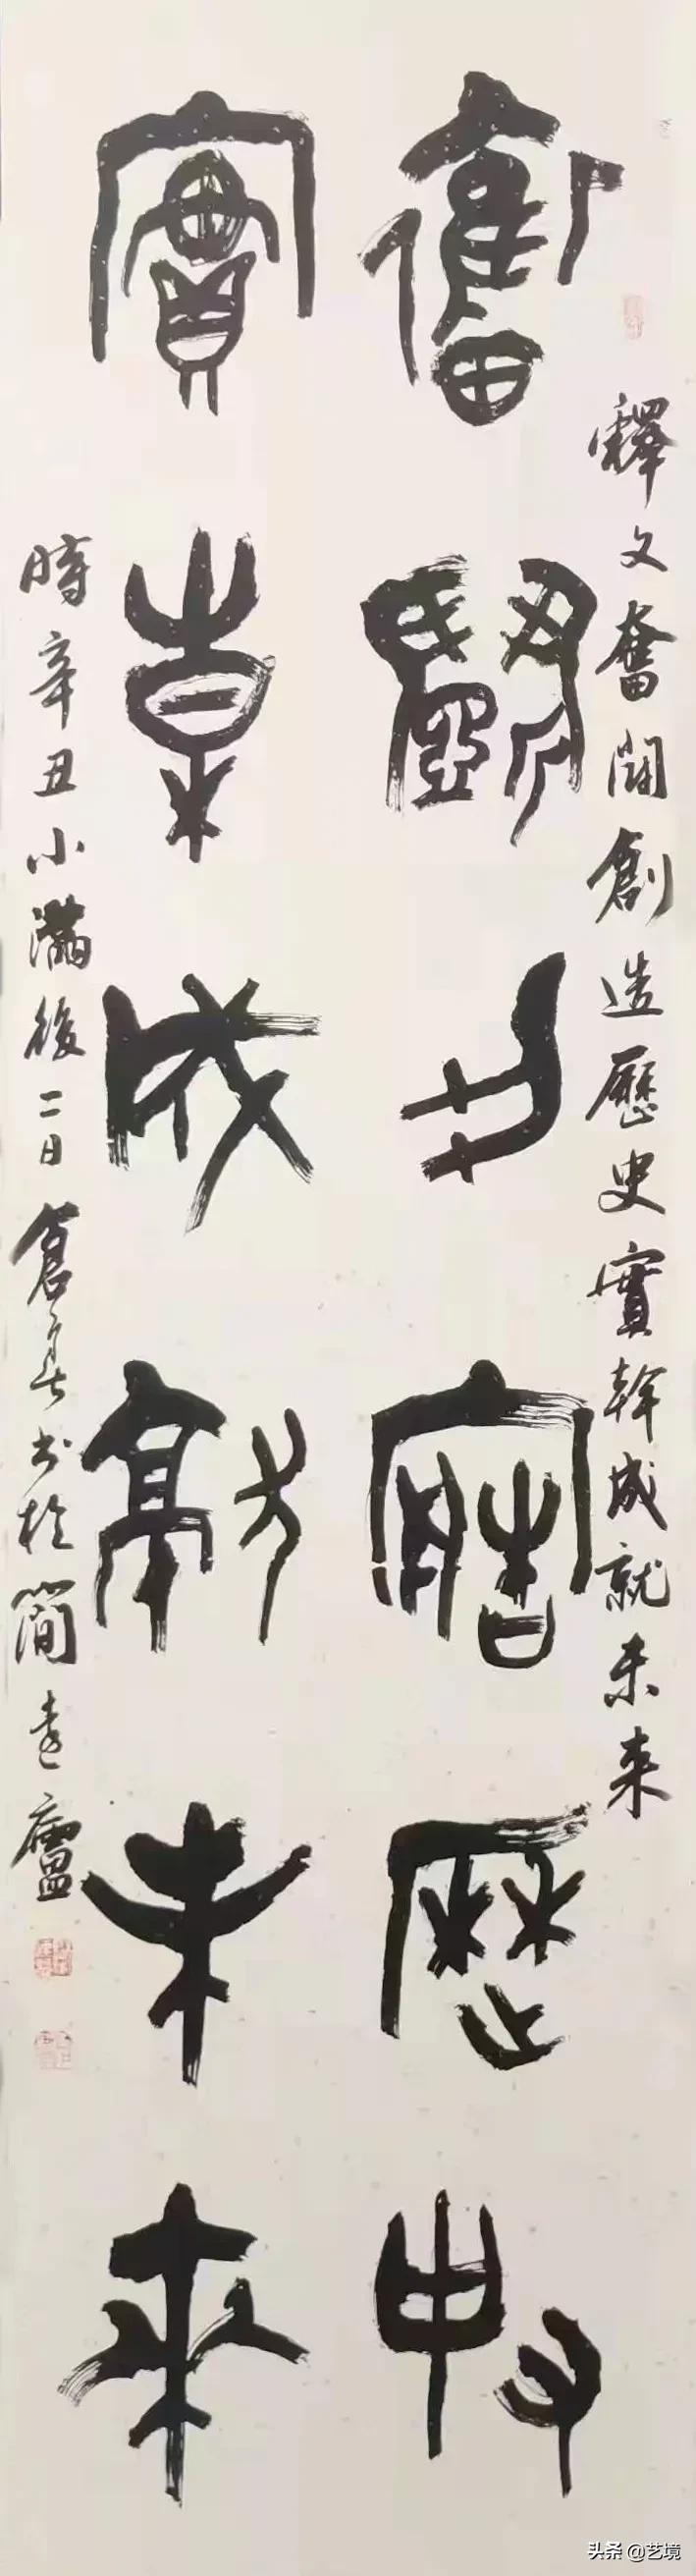 釋文奮鬪創造歷史實幹成就未来
奮鬪創造歷史
實幹成就未來
時辛丑小滿後二日倉
書於簡遠廬
头条 @艺境